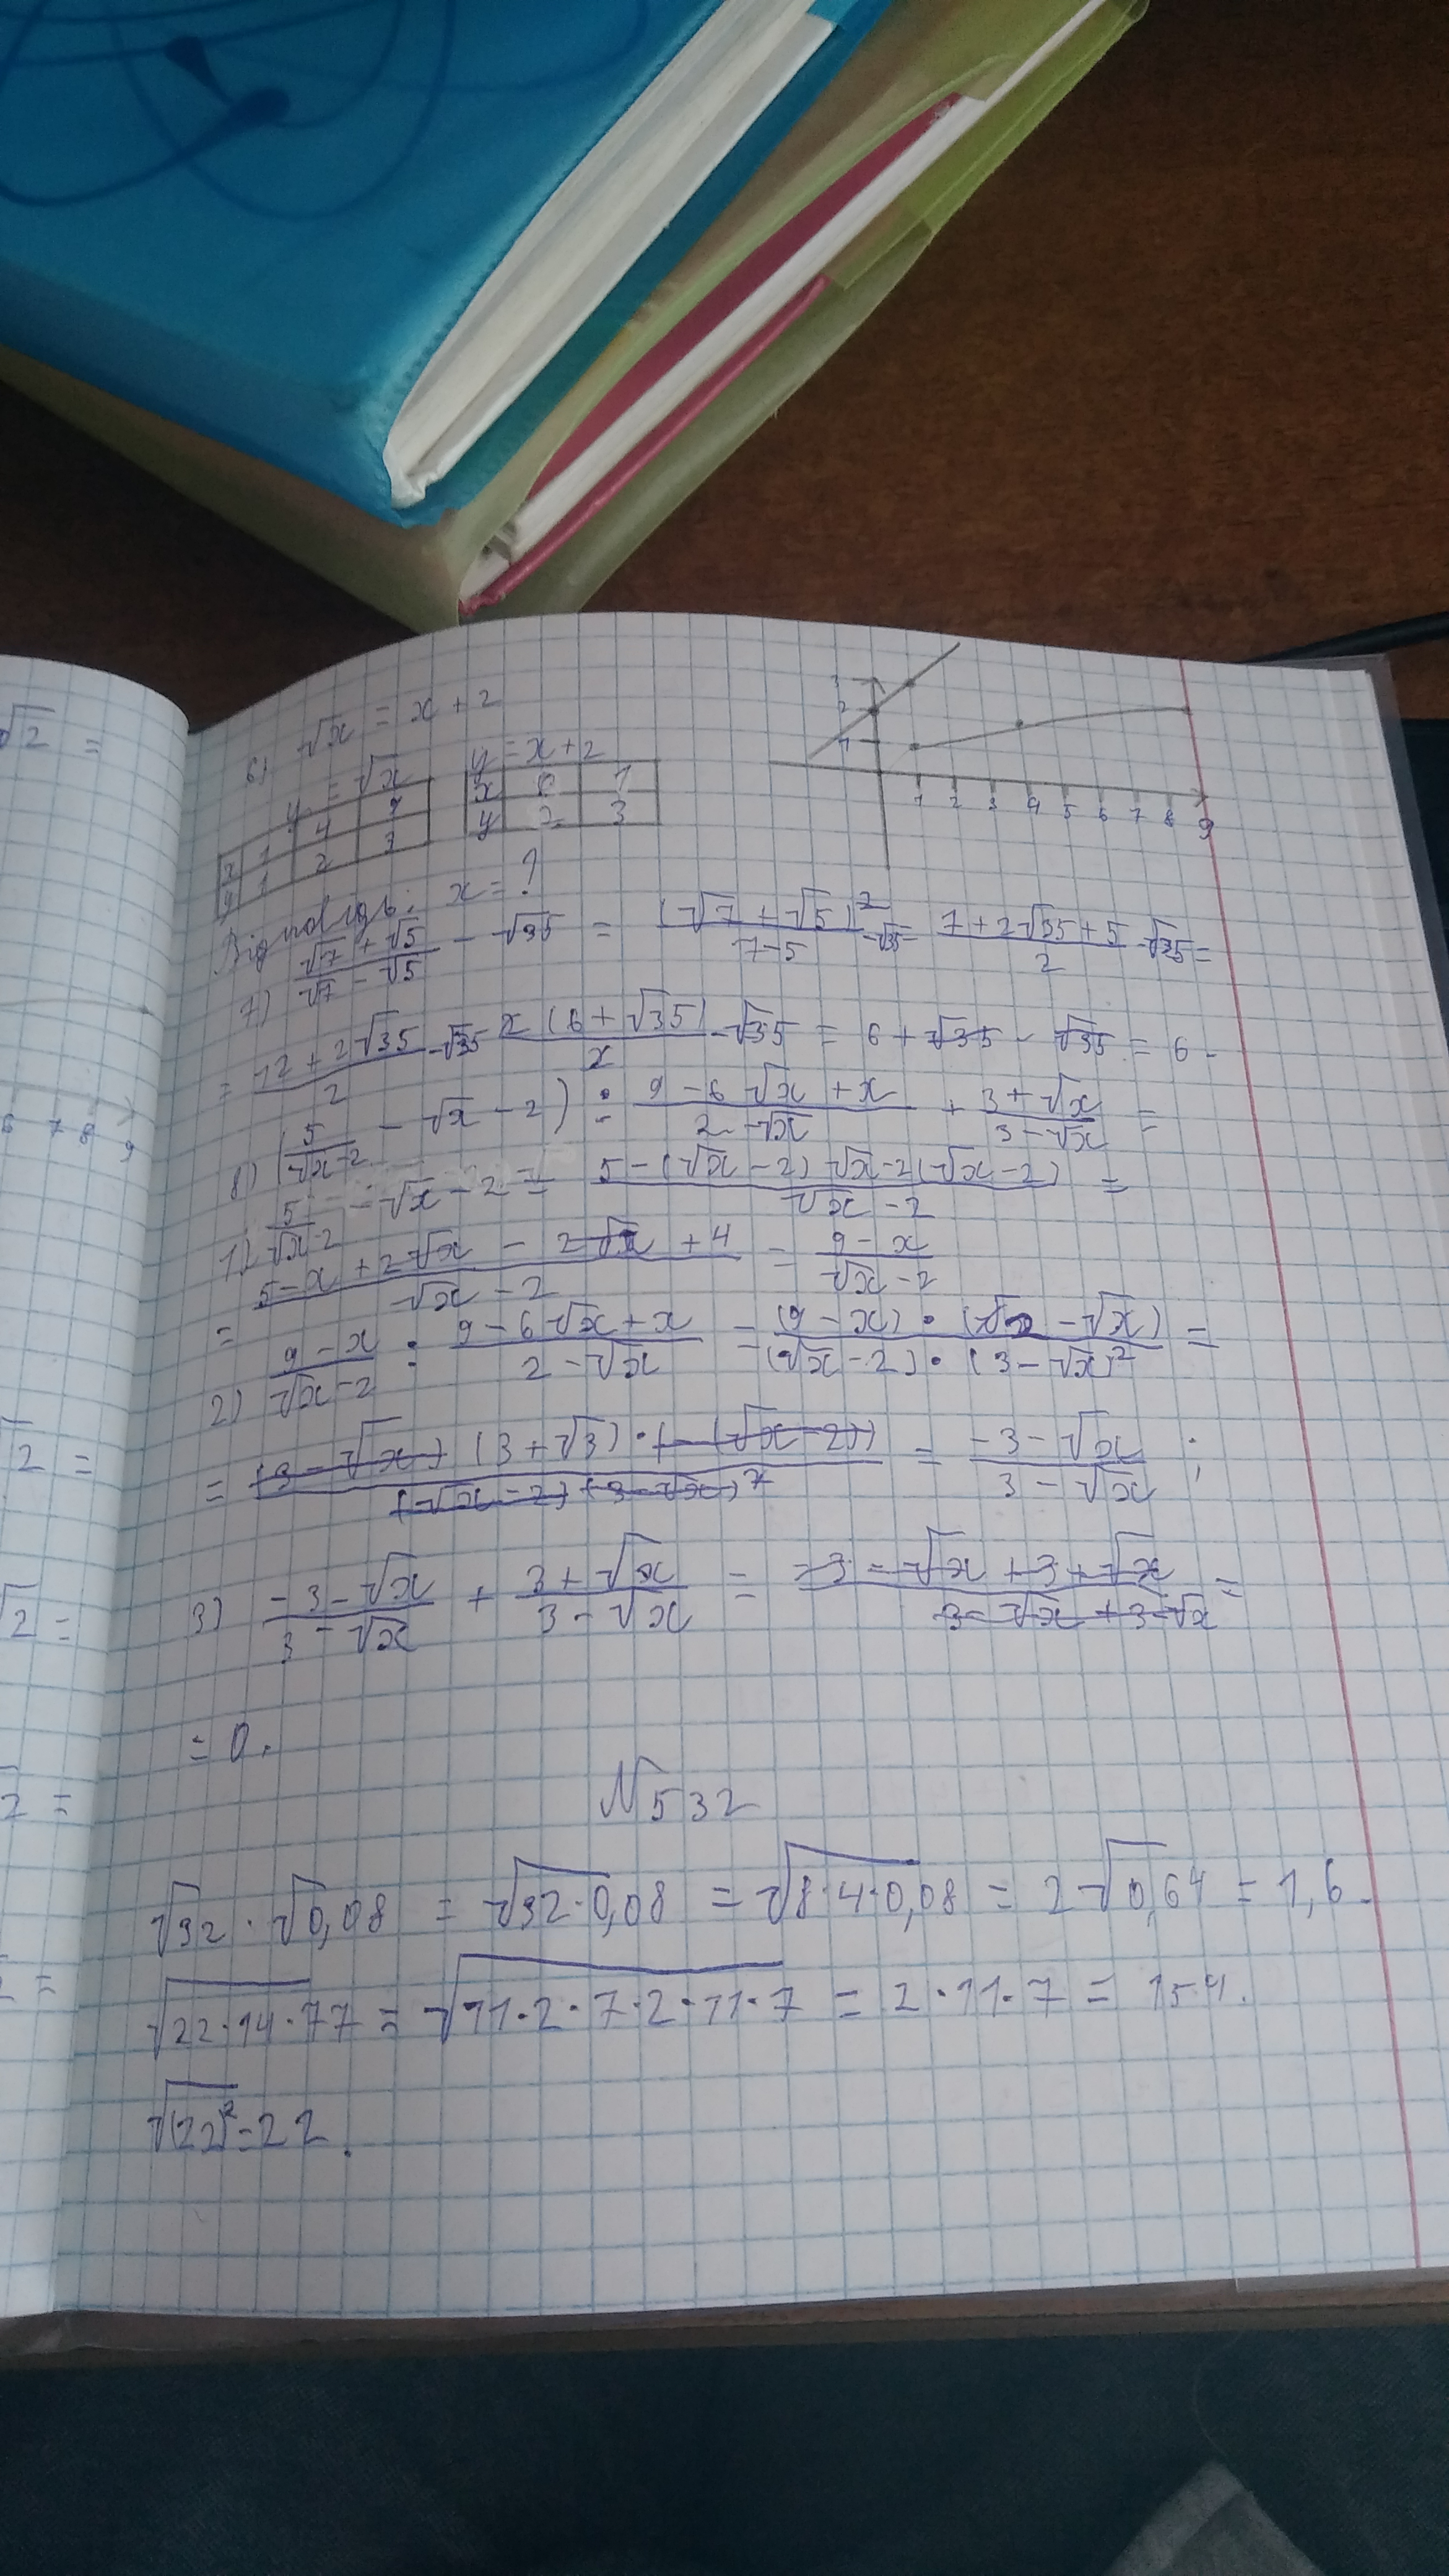 6) √x = x + 2
y = √x
y = x + 2
x 1 4 9
y 1 2 3
x 0 1
y 2 3
3
2
1
1 2 3 4 5 6 7 8 9
Відповідь: x = ?
7) (√7 + √5)/(√7 − √5) − √35 = (√7 + √5)²/(7−5) − √35 = (7 + 2√35 + 5)/2 − √35 =
= (12 + 2√35)/2 − √35 = 2(6 + √35)/2 − √35 = 6 + √35 − √35 = 6.
8) (5/(√x−2) − √x − 2) : (9 − 6√x + x)/(2 − √x) + (3 + √x)/(3 − √x) =
1) 5/(√x−2) − √x − 2 = (5 − (√x − 2)√x − 2(√x − 2))/(√x − 2) =
= (5 − x + 2√x − 2√x + 4)/(√x − 2) = (9 − x)/(√x − 2)
2) (9 − x)/(√x − 2) : (9 − 6√x + x)/(2 − √x) = (9 − x) · ( − √x)/((√x − 2) · (3 − √x)²) =
= (3 − √x)(3 + √3) · (−(√x − 2))/((√x − 2)(3 − √x)²) = (−3 − √x)/(3 − √x) ;
3) (−3 − √x)/(3 − √x) + (3 + √x)/(3 − √x) = (−3 − √x + 3 + √x)/(3 − √x + 3 − √x) =
= 0.
N532
√32 · √0,08 = √32·0,08 = √8·4·0,08 = 2√0,64 = 1,6.
√22·14·77 = √11·2·7·2·11·7 = 2·11·7 = 154.
√(22)² = 22.
√2 =
6 7 8 9
√2 =
√2 =
2 =
=